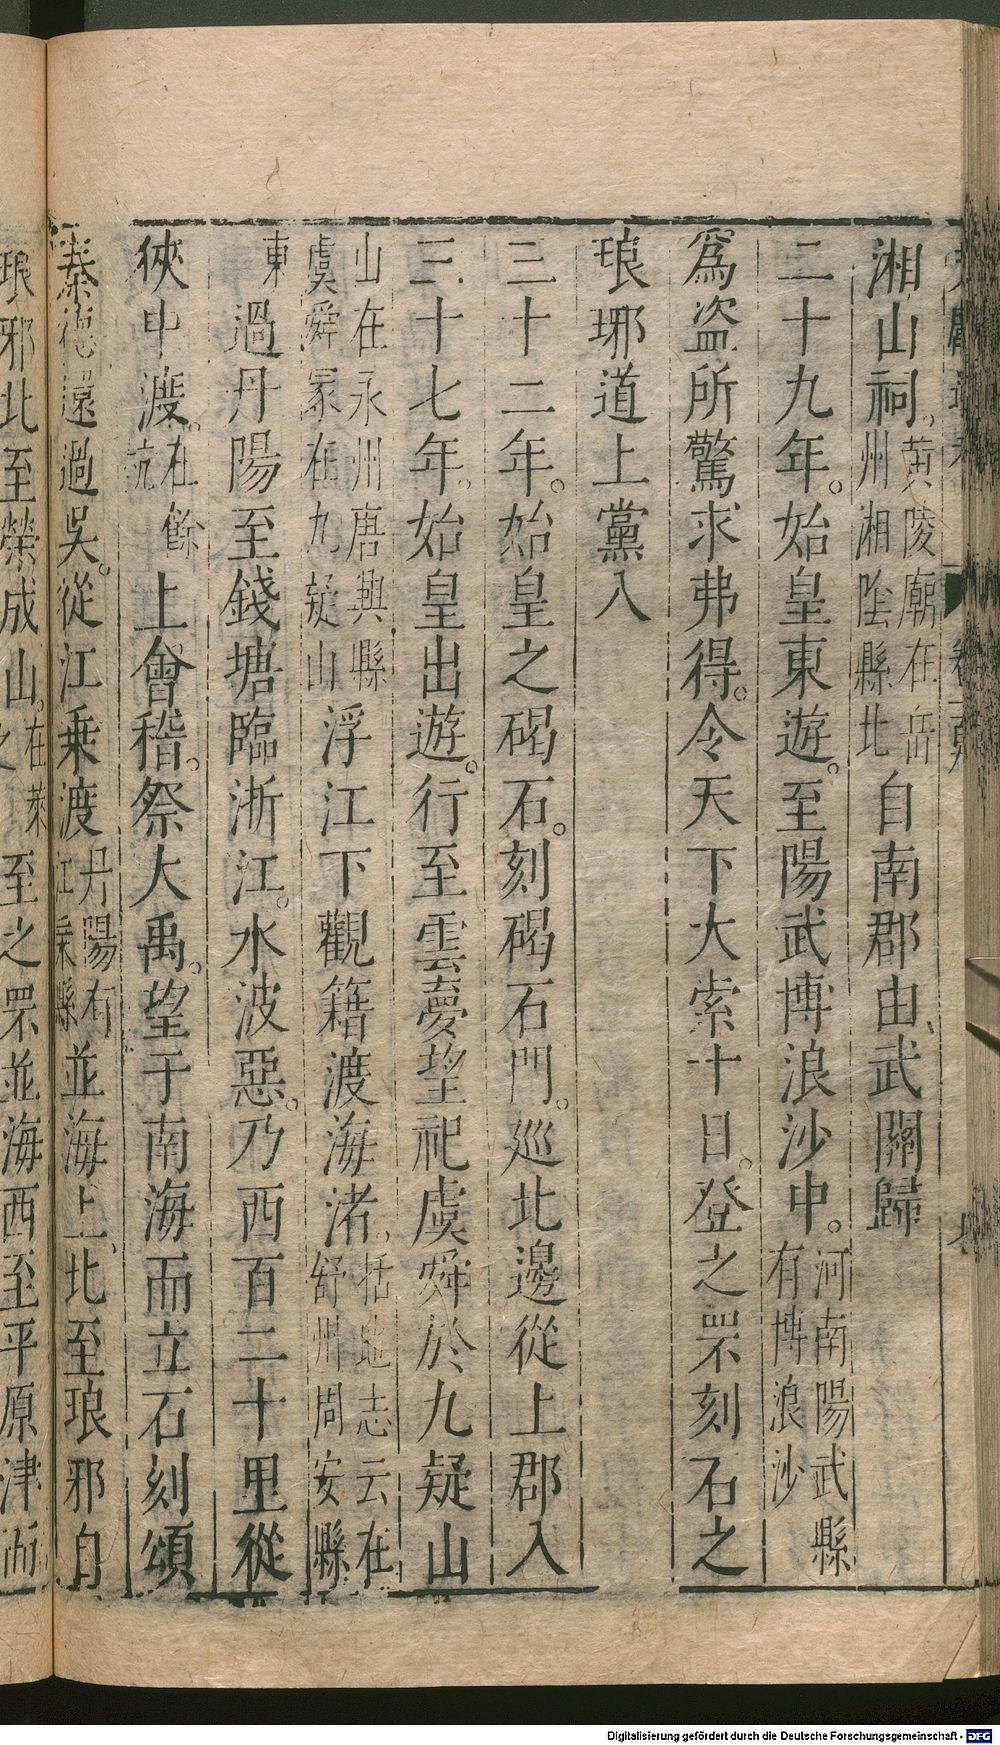 湘山祠。黄陵廟在岳州湘陰縣北自南郡由武關歸
二十九年。始皇東遊。至陽武博浪沙中。河南陽武縣有博浪沙
為盗所驚求弗得。令天下大索十日。登之罘刻石之
琅琊道上黨入
三十二年。始皇之碣石。刻碣石門。巡北邊從上郡入
三十七年。始皇出遊。行至雲夢望祀虞舜於九疑山
山在永州唐興縣虞舜冢在九疑山浮江下觀籍渡海渚、括地志云在舒州周安縣
東過丹陽至錢塘臨浙江。水波惡。乃西百二十里從
狹中渡。在餘杭上會稽。祭大禹。望于南海而立石刻頌
秦德還過吳。從江乗渡丹陽有江乗縣並海上、北至琅邪自
琅邪北至榮成山。在萊至之罘並海西至平原津而
Digitalisierung gefördert durch die Deutsche Forschungsgemeinschaft - DFG